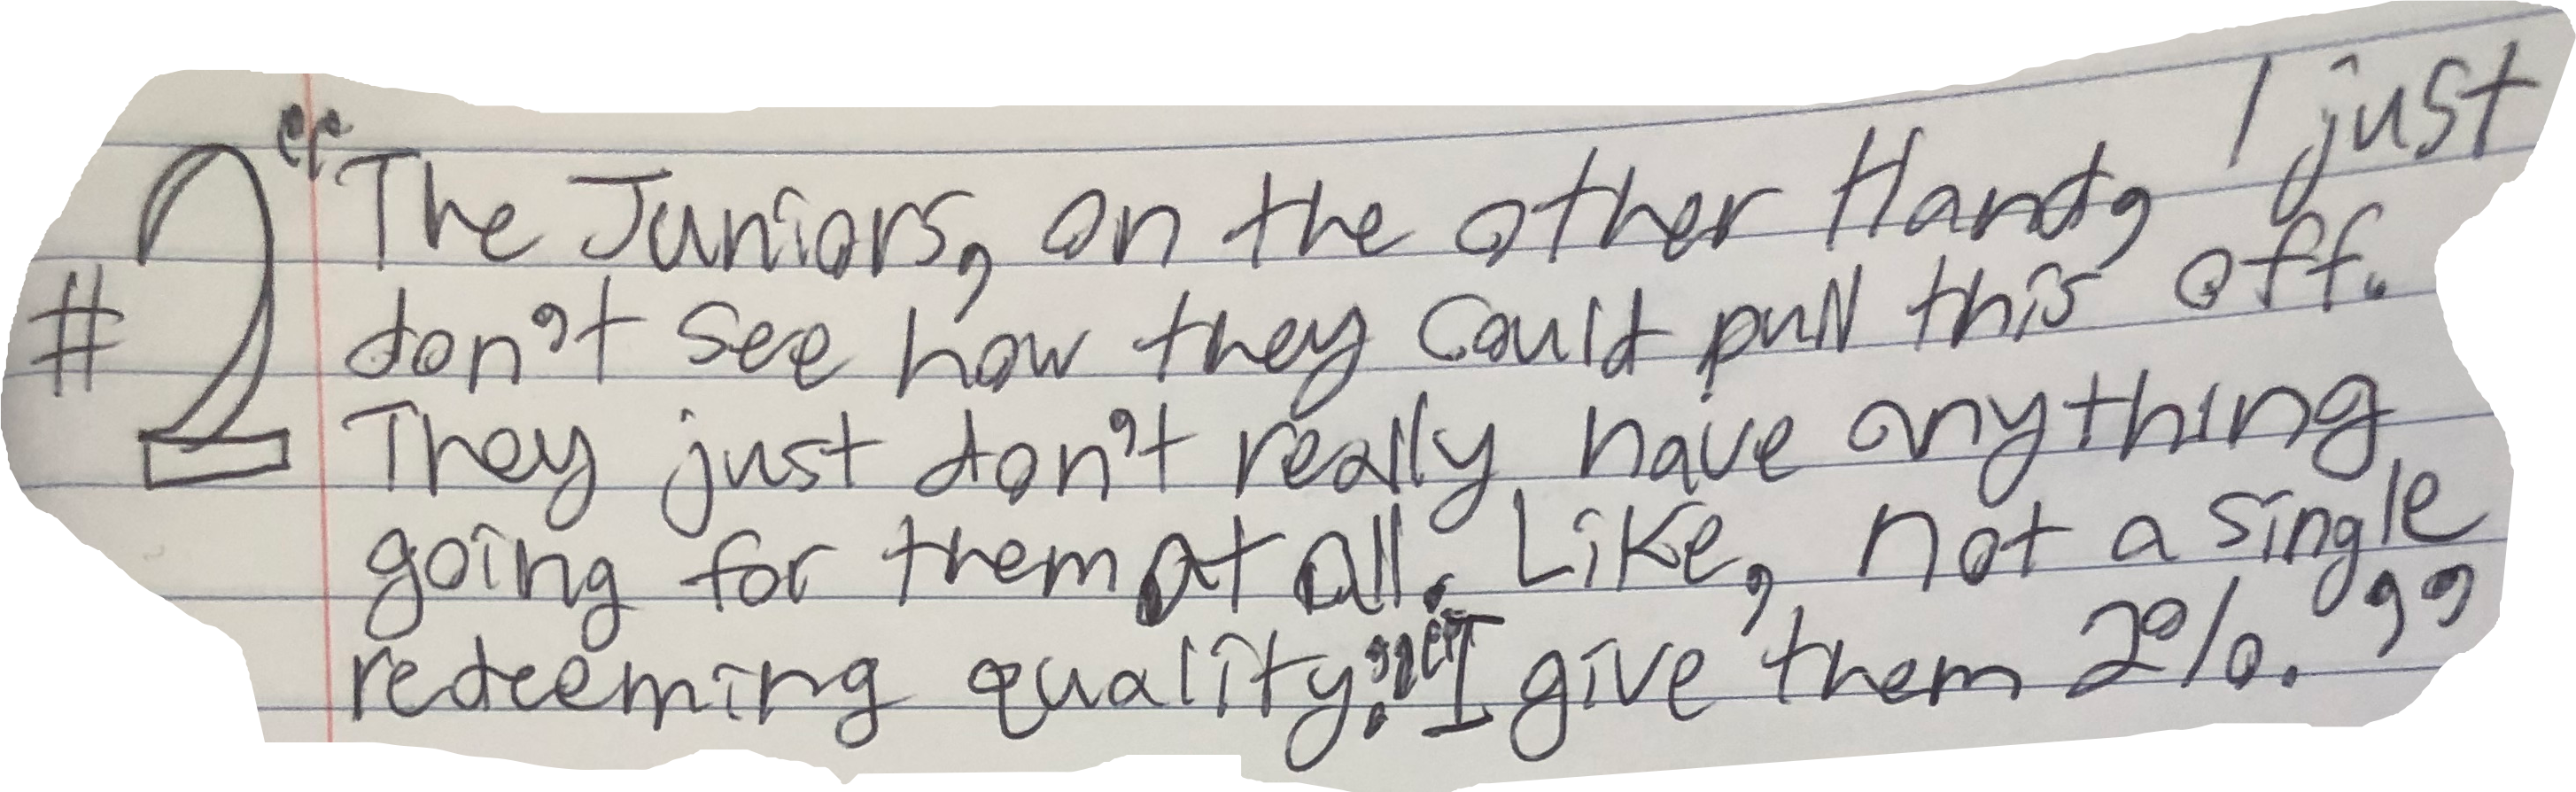 #2 "The Juniors, on the other Hand, I just
don't see how they could pull this off.
They just don't really have anything
going for them at all. Like, not a single
redeeming quality." "I give them 2%."